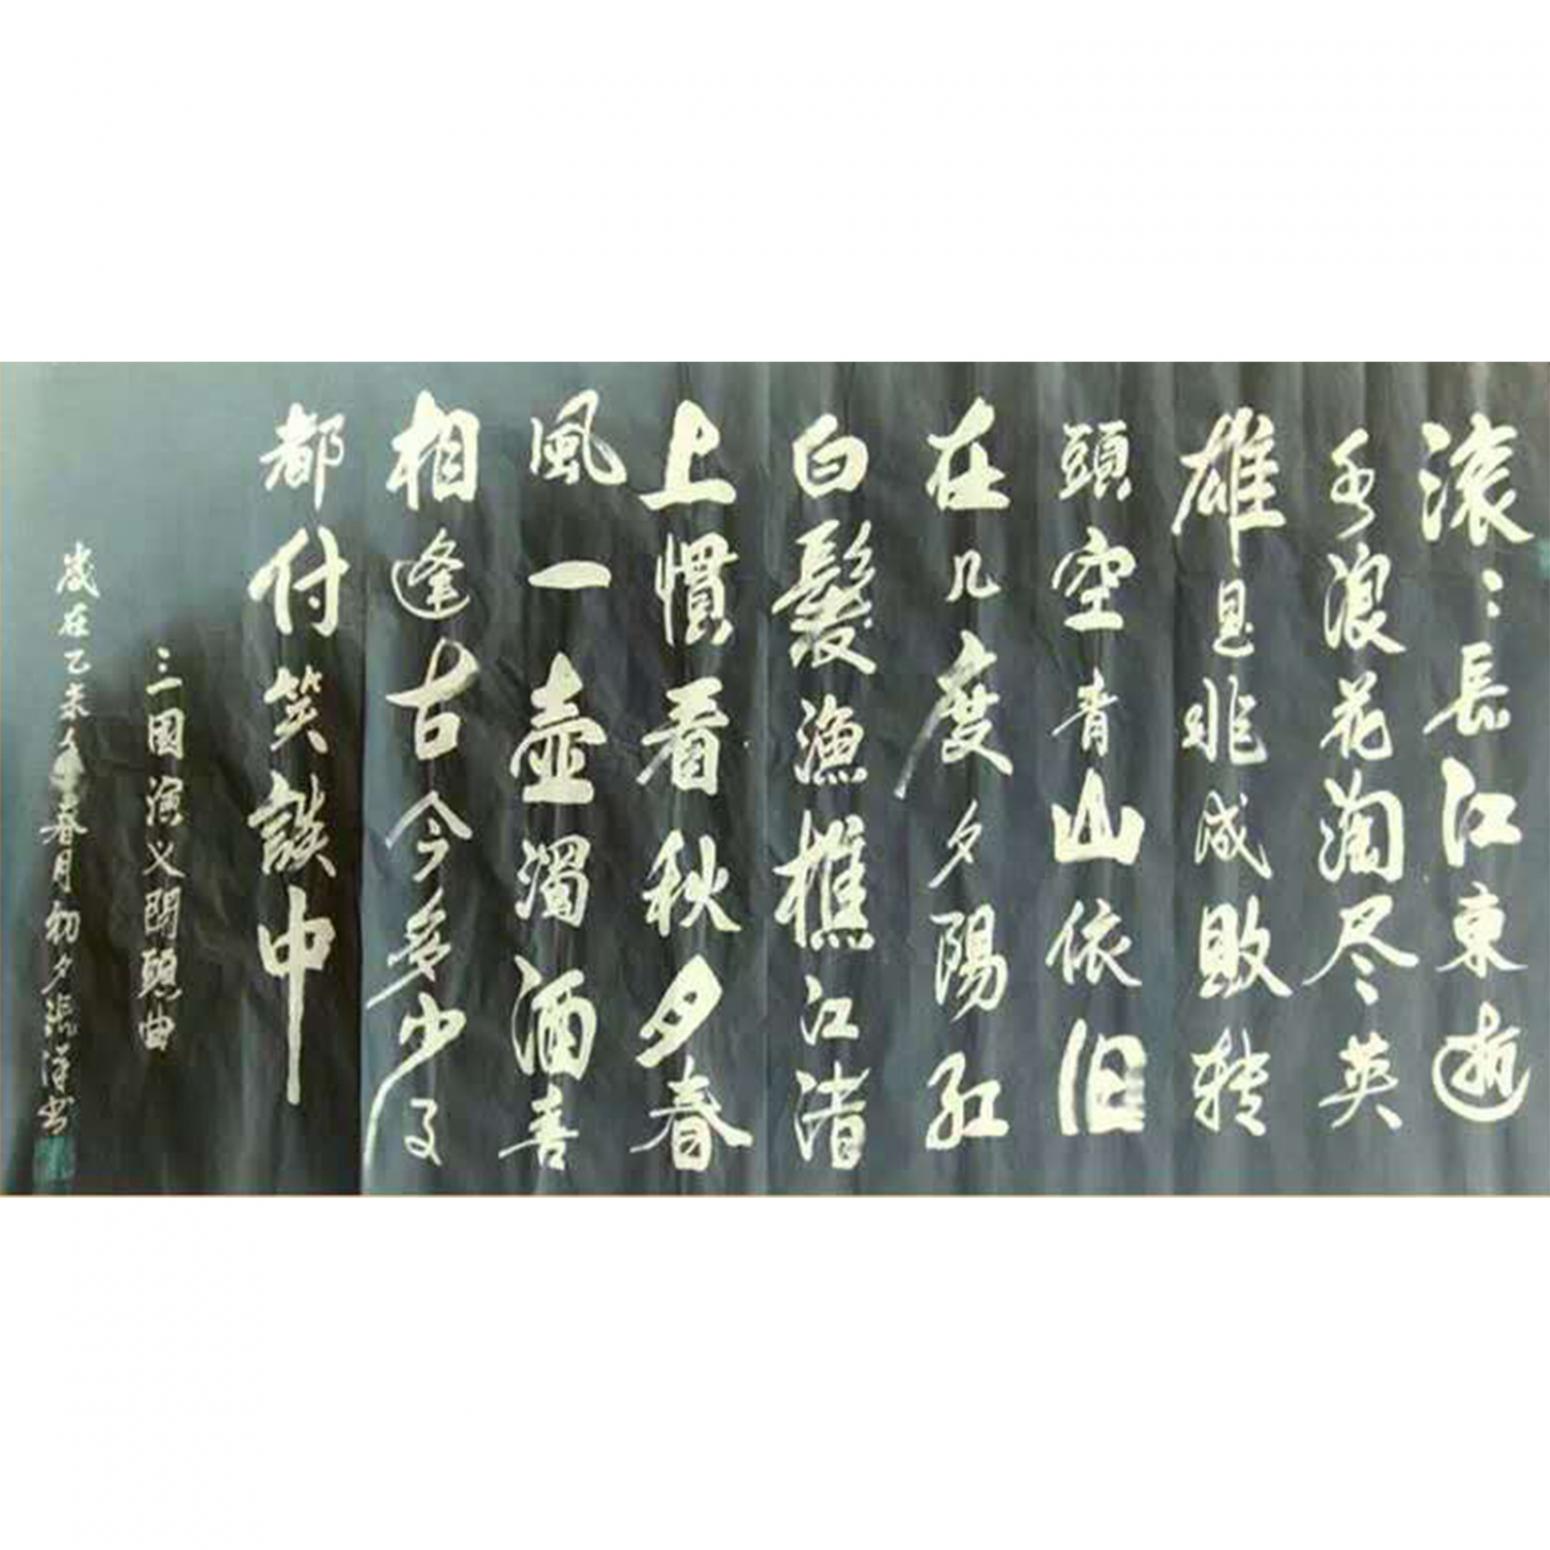 滚〻長江東逝
水浪花淘尽英
雄是非成敗转
頭空青山依旧
在几度夕陽红
白髮漁樵江渚
上慣看秋月春
風一壺濁酒喜
相逢古今多少事
都付笑談中
三國演义開頭曲
歲在乙未春月初夕 书